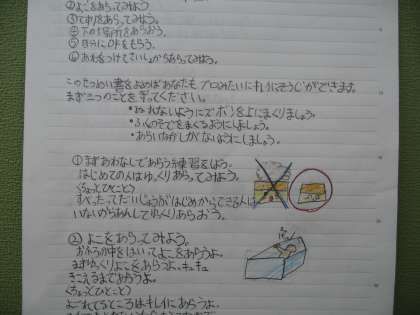 ②よこをあらってみよう
③てすりをあらってみよう。
④下の場所をあらおう。
⑤自分にOKをもらう。
⑥あわをつけてさいしょからあらってみよう。
このせつめい書をよめばあなたもプロみたいにキレイにそうじができます。
まず三つのことを守ってください。
・ぬれないようにズボンを上にまくりましょう。
・ふくのそでをまくるようにしましょう。
・あらいなおしがないようにしましょう。
①まずあわなしであらう練習をしよう。
はじめての人はゆっくりあらってみよう。
くちょっとひとこと〉
すべったってだいじょうぶ はじめからできる人は
いないからあんしんしてゆっくりあらおう。
②よこをあらってみよう。
おふろの中をはいってよこをあらうよ。
まずゆっくりよこをあらうよ。キュキュ
きこえるまであらうよ。
くちょっとひとこと〉
よごれてるところはキレイにあらうよ。